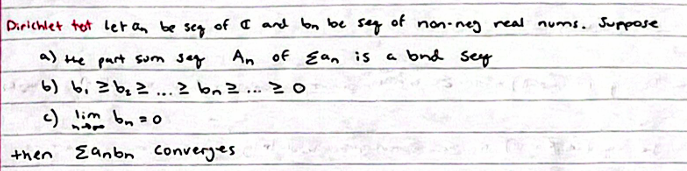 Dirichlet tst let an be seq of ℂ and bn be seq of non-neg real nums. Suppose
a) the part sum seq An of Σan is a bnd seq
b) b₁ ≥ b₂ ≥ ... ≥ bn ≥ ... ≥ 0
c) lim n→∞ bn = 0
then Σanbn converges